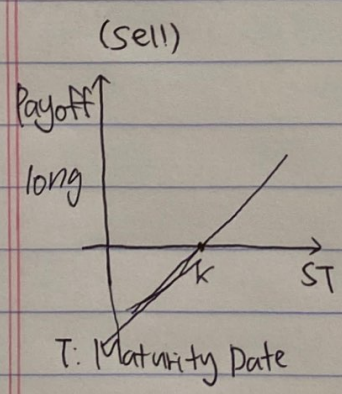 (sell)
Payoff
long
K
ST
T: Maturity Date